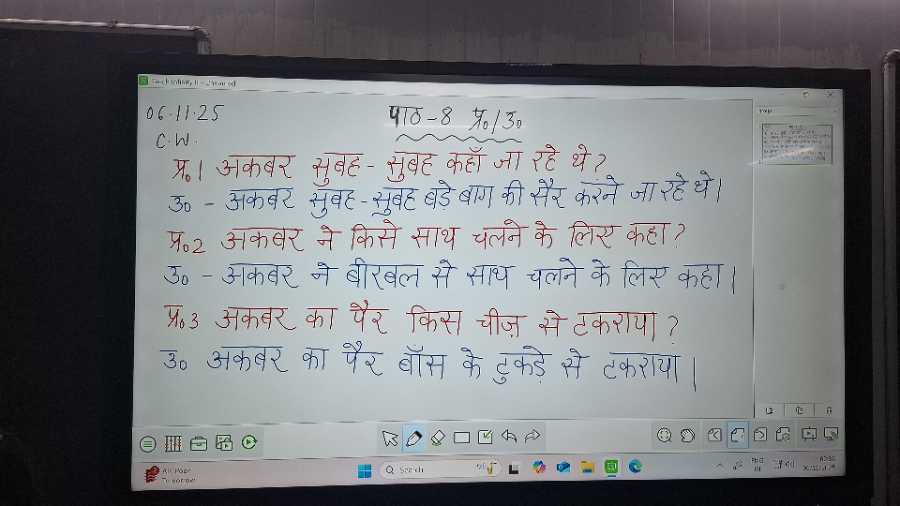 06.11.25
पाठ-8 प्र०/उ०
C.W.
प्र०1 अकबर सुबह-सुबह कहाँ जा रहे थे?
उ० - अकबर सुबह-सुबह बड़े बाग की सैर करने जा रहे थे।
प्र०2 अकबर ने किसे साथ चलने के लिए कहा?
उ० - अकबर ने बीरबल से साथ चलने के लिए कहा।
प्र०3 अकबर का पैर किस चीज़ से टकराया?
उ० अकबर का पैर बाँस के टुकड़े से टकराया।
Search